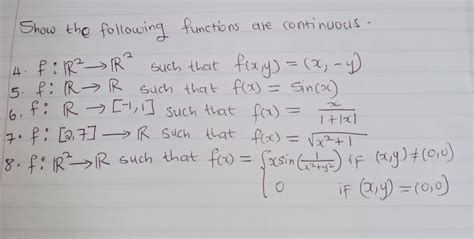 Show the following functions are continuous.
4. f : ℝ² → ℝ² such that f(x,y) = (x, -y)
5. f : ℝ → ℝ such that f(x) = sin(x)
6. f : ℝ → [-1,1] such that f(x) = x/(1+|x|)
7. f : [2,7] → ℝ such that f(x) = √(x²+1)
8. f : ℝ² → ℝ such that f(x) = { x sin(1/(x²+y²)) if (x,y) ≠ (0,0)
0 if (x,y) = (0,0)